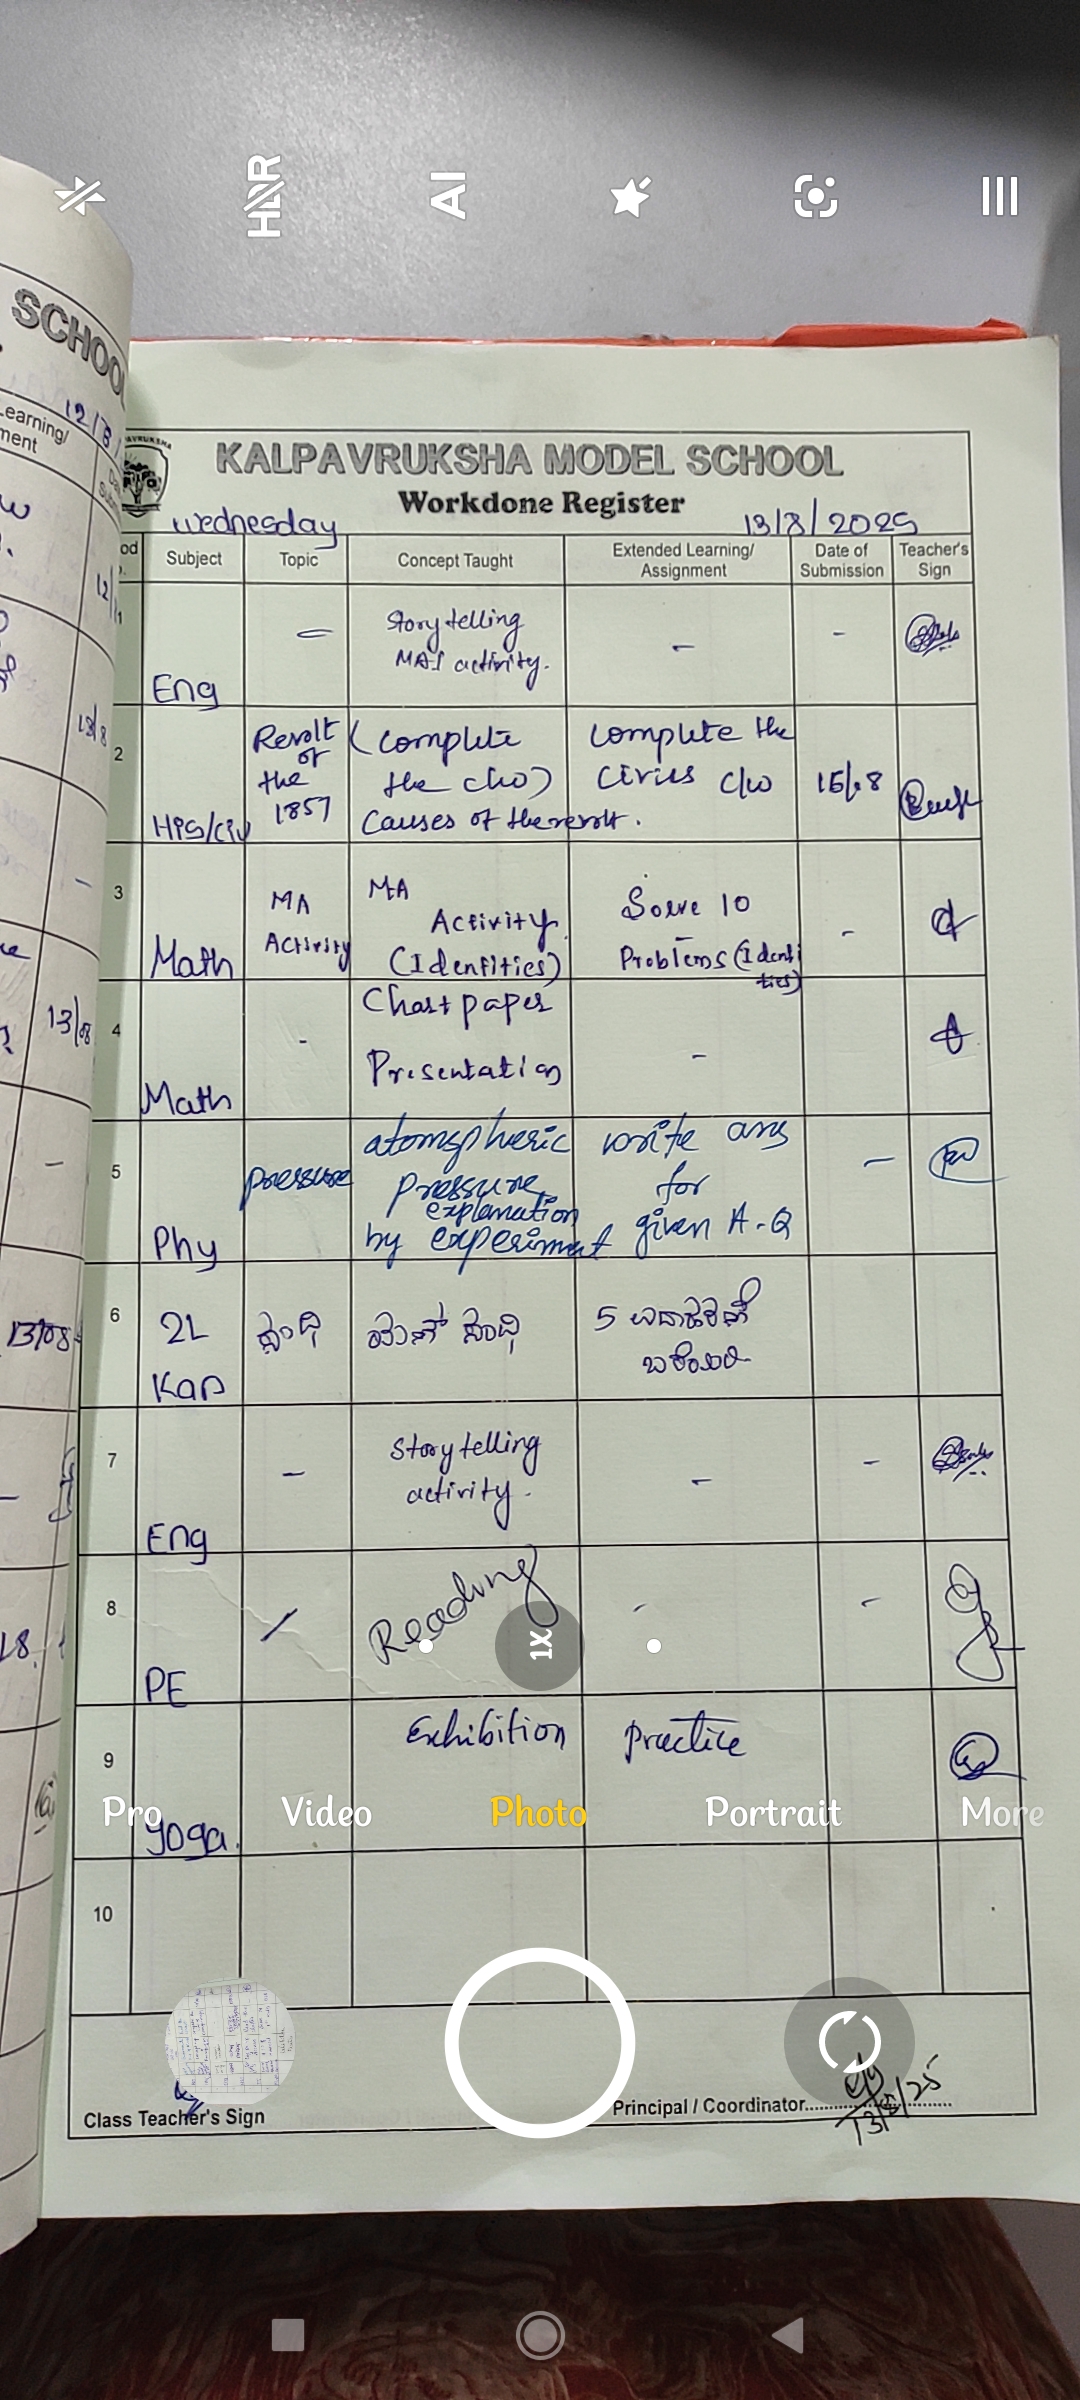 HDR
AI
SCHOOL
KALPAVRUKSHA MODEL SCHOOL
Workdone Register
Wednesday
13/8/2025
Subject
Topic
Concept Taught
Extended Learning/
Assignment
Date of
Submission
Teacher's
Sign
Eng
Storytelling
activity.
-
-
2
His/civ
Revolt
of
the
1857
(complete
the c/w)
Causes of the revolt.
Complete the
Civics c/w
15/8
3
Math
MA
Activity
MA
Activity
(Identities)
Solve 10
Problems (Identi
ties)
-
4
Math
-
Chart paper
Presentation
-
5
Phy
pressure
atomspheric
pressure
explanation
by experiment
write ans
for
given A-Q
-
6
2L
Kan
ಸಂಧಿ
ಯಣ್ ಸಂಧಿ
5
7
Eng
-
Storytelling
activity.
-
-
8
PE
Reading
-
-
9
Yoga.
Exhibition
Practice
10
1X
Pro
Video
Photo
Portrait
More
Class Teacher's Sign
Principal / Coordinator
13/8/25